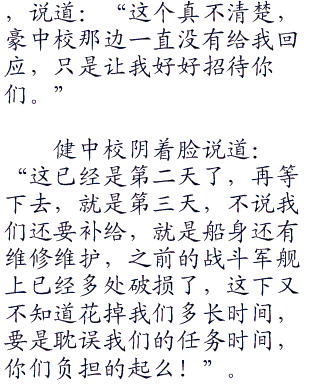 ，说道：“这个真不清楚，
豪中校那边一直没有给我回
应，只是让我好好招待你
们。”
健中校阴着脸说道：
“这已经是第二天了，再等
下去，就是第三天，不说我
们还要补给，就是船身还有
维修维护，之前的战斗军舰
上已经多处破损了，这下又
不知道花掉我们多长时间，
要是耽误我们的任务时间，
你们负担的起么！”。